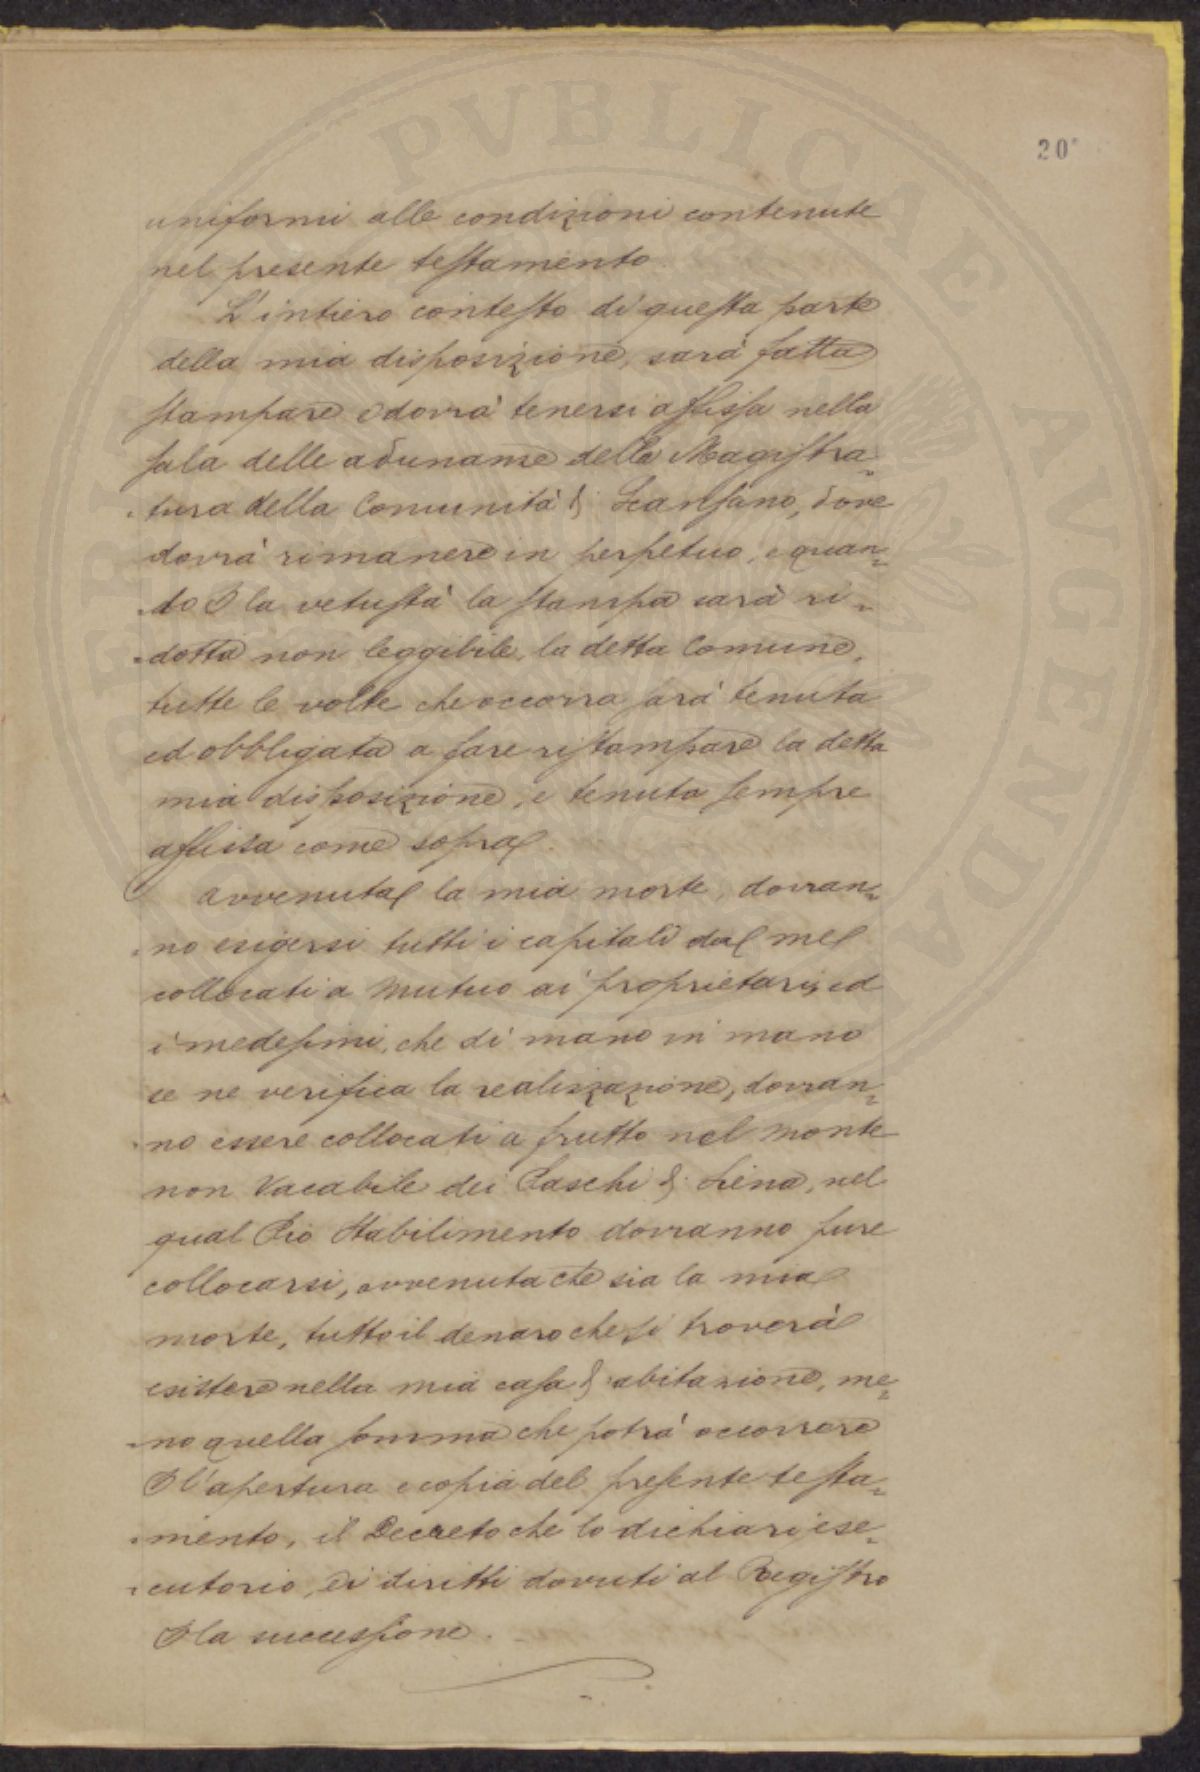 PVBLICAE
OPERI
AVGENDAE
20
uniformi alle condizioni contenute
nel presente testamento.
L'intiero contesto di questa parte
della mia disposizione, sarà fatta
stampare e dovrà tenersi affissa nella
sala delle adunanze della Magistra-
-tura della Comunità di Scansano, dove
dovrà rimanere in perpetuo, e quan-
-do la vetustà la stampa sarà ri-
-dotta non leggibile, la detta Comune,
tutte le volte che occorra sarà tenuta
ed obbligata a fare ristampare la detta
mia disposizione, e tenuta sempre
affissa come sopra.
Avvenuta la mia morte, dovran-
-no esigersi tutti i capitali da me
collocati a mutuo ai proprietari, ed
i medesimi, che di mano in mano
se ne verifica la realizzazione, dovran-
-no essere collocati a frutto nel monte
non Vacabile dei Paschi di Siena, nel
qual Pio Stabilimento dovranno pure
collocarsi, avvenuta che sia la mia
morte, tutto il denaro che si troverà
esistere nella mia casa di abitazione, me-
-no quella somma che potrà occorrere
l'apertura e copia del presente testa-
-mento, il Decreto che lo dichiari ese-
-cutorio, ei diritti dovuti al Registro
la successione.